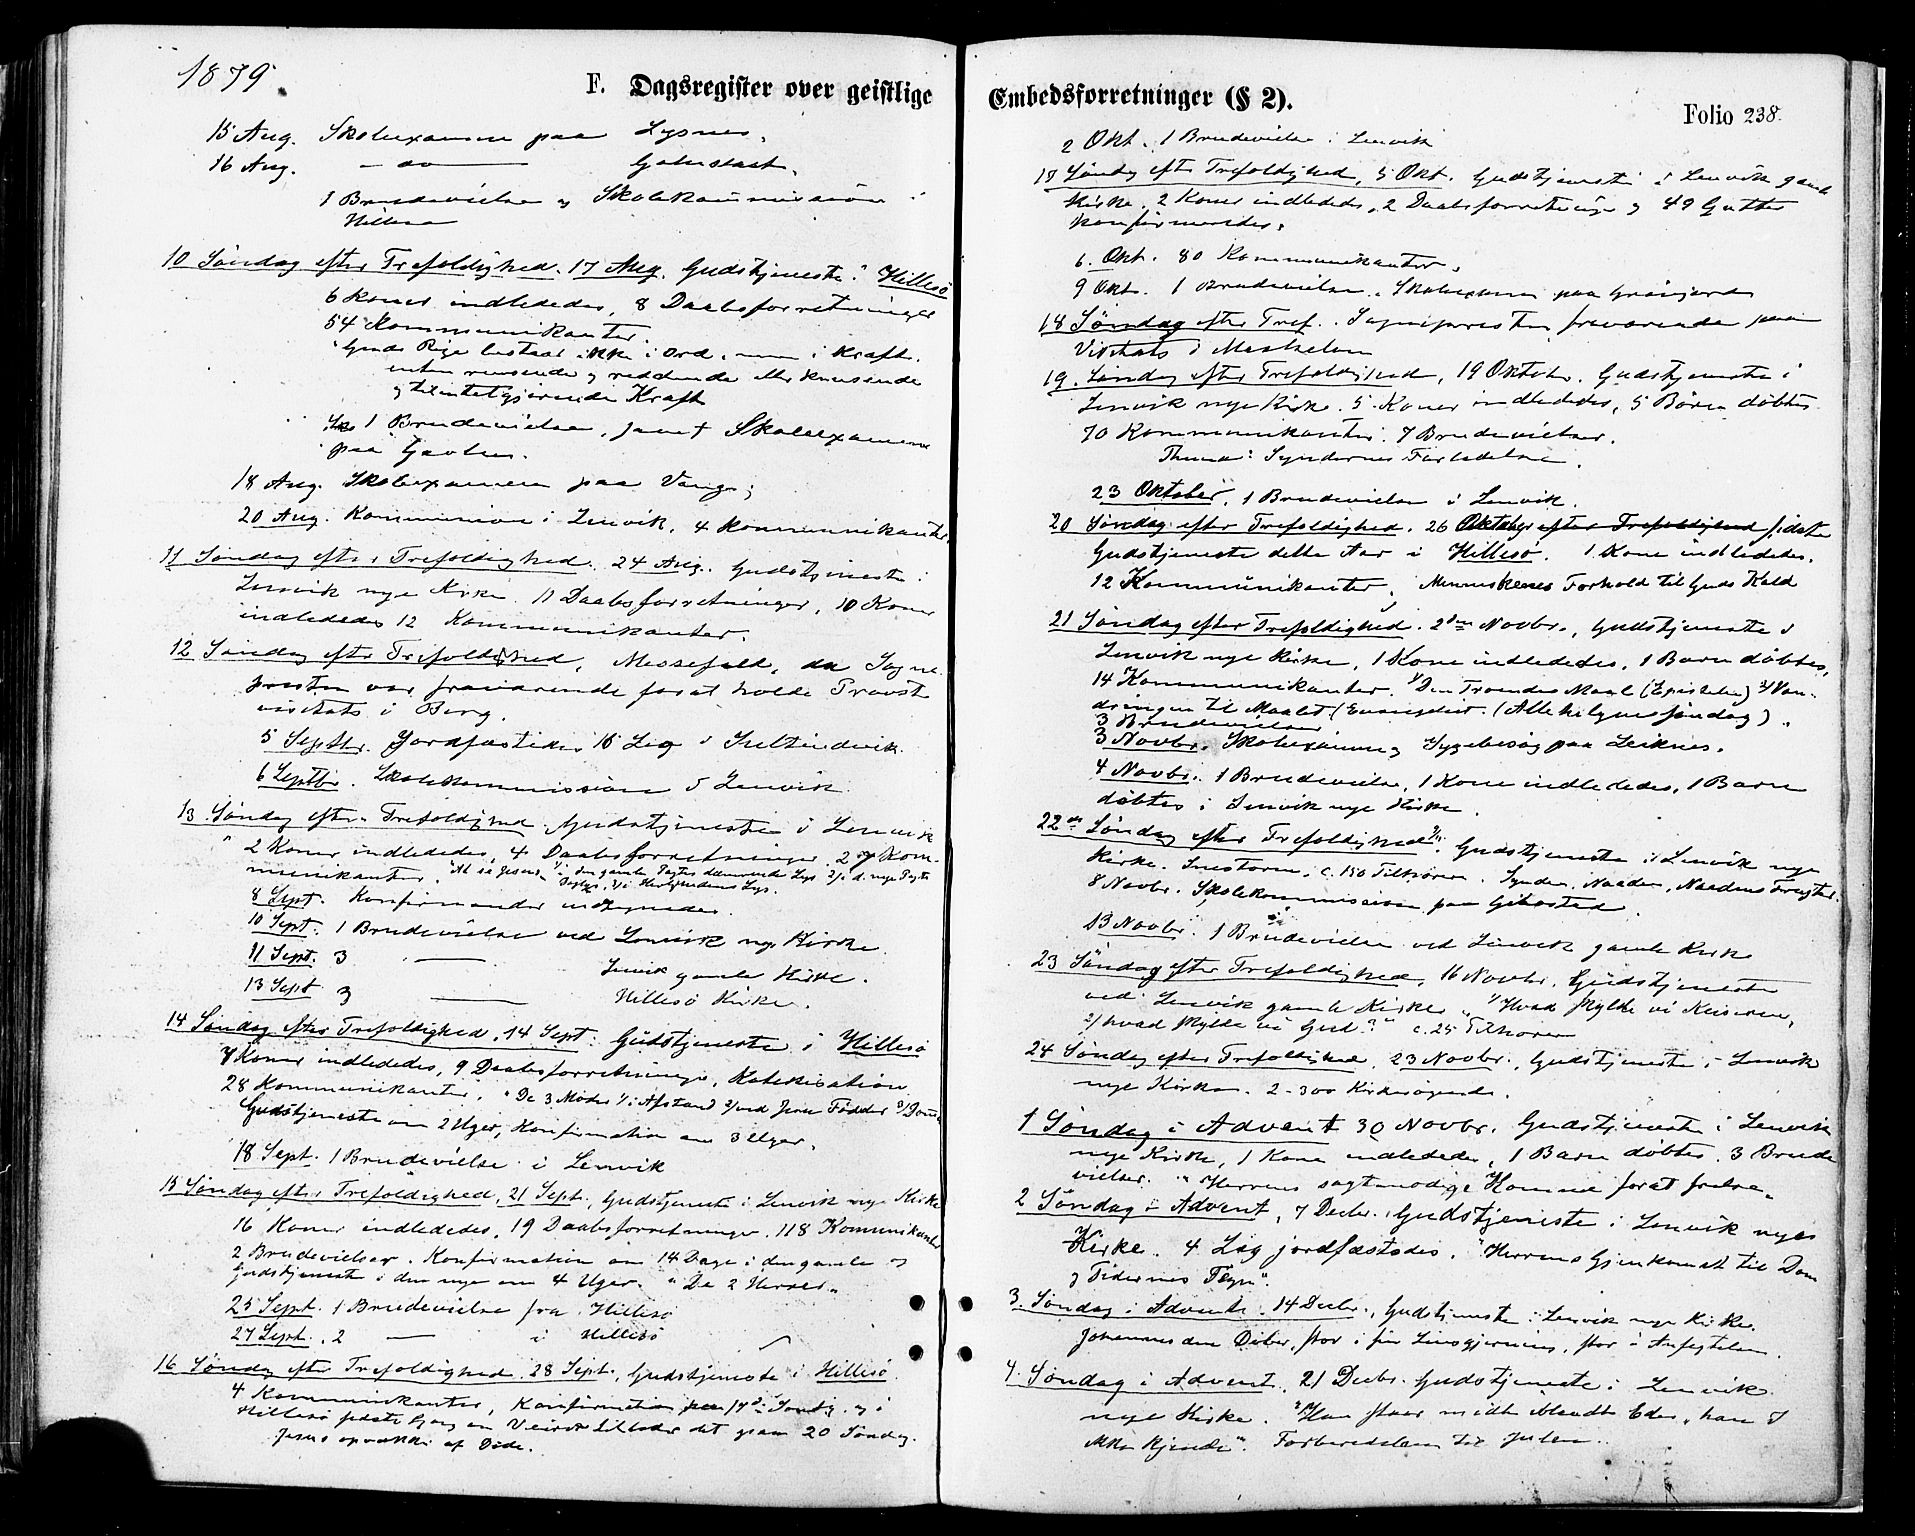 1879.
F. Dagsregister over geistlige
15 Aug. Skoleexamen paa Lysnes.
16 Aug. — do — Gibostad.
1 Brudevielse og Skolekommission i
Hillesø
10 Søndag efter Trefoldighed. 17 Aug. Gudstjeneste i Hillesø
6 Koner indlededes, 8 Daabsforretninger
54 Kommunikanter.
"Guds Rige bestaar ikke i Ord, men i Kraft.
enten rensende og reddende eller knusende
og tilintetgjørende Kraft
1 Brudevielse, samt Skoleexamen
paa
18 Aug. Skoleexamen paa Vang;
20 Aug. Kommunion i Lenvik. 4 Kommunikanter.
11 Søndag efter Trefoldighed. 24 Aug. Gudstjeneste i
Lenvik nye Kirke. 11 Daabsforretninger, 10 Koner
indlededes 12 Kommunikanter.
12 Søndag efter Trefoldighed, Messefald, da Sogne-
presten var fraværende forat holde Provst
visitats i Berg.
5 Septbr. Jordfæstedes 16 Lig i
6 Septbr. Skolekommission i Lenvik.
13 Søndag efter Trefoldighed Gudstjeneste i Lenvik
2 Koner indlededes, 4 Daabsforretninger 27 Kom-
munikanter. "At se Jesus" 1/ i den gamle Pagts dæmrende Lys 2/ i d. nye Pagts
Dagslys, 3/ i Herlighedens Lys.
8 Sept. Konfirmander
10 Sept. 1 Brudevielse ved Lenvik nye Kirke.
11 Sept. 3 — Lenvik gamle Kirke.
13 Sept 3 — Hillesø Kirke.
14 Søndag efter Trefoldighed, 14 Sept. Gudstjeneste i Hillesø
7 Koner indlededes, 9 Daabsforretninger, Katekisation
28 Kommunikanter. "De 3 Møder 1/ i Afstand 2/ ved Jesu Fødder 3/
Gudstjeneste om 2 Uger, Konfirmation om 3 Uger.
18 Sept. 1 Brudevielse i Lenvik
15 Søndag efter Trefoldighed, 21 Sept. Gudstjeneste i Lenvik nye Kirke
16 Koner indlededes, 19 Daabsforretninger. 118 Kommunikanter
2 Brudevielser. Konfirmation om 14 Dage i den gamle og
Gudstjeneste i den nye om 4 Uger. "De 2 Herrer"
25 Sept. 1 Brudevielse fra Hillesø
27 Sept. 2 — i Hillesø
16 Søndag efter Trefoldighed 28 Sept., Gudstjeneste i Hillesø.
4 Kommunikanter, Konfirmation 17de Søndag og i
Hillesø sidste Gang om Veiret tillader det paa 20 Søndag.
Jesus opvækker af Døde.
Embedsforretninger (§ 2).
Folio 238.
2 Okt. 1 Brudevielse i Lenvik
17 Søndag efter Trefoldighed, 5 Okt. Gudstjeneste i Lenvik gamle
Kirke. 2 Koner indlededes, 2 Daabsforretninger og 49 Gutter
konfirmeredes.
6. Okt. 80 Kommunikanter.
9 Okt. 1 Brudevielse. Skoleexamen paa
18 Søndag efter Tref. Sognepresten fraværende paa
Visitats i
19. Søndag efter Trefoldighed, 19 Oktober. Gudstjeneste i
Lenvik nye Kirke. 5 Koner indlededes, 5 Børn døbtes
70 Kommunikanter. 7 Brudevielser.
Thema: Syndernes Forladelse.
23 Oktober. 1 Brudevielse i Lenvik.
20 Søndag efter Trefoldighed. 26 Oktober efter Trefoldighed sidste
Gudstjeneste dette Aar i Hillesø. 1 Kone indlededes.
12 Kommunikanter, Menneskenes Forhold til Guds Kald
21 Søndag efter Trefoldighed. 2den Novbr., Gudstjeneste i
Lenvik nye Kirke, 1 Kone indlededes, 1 Barn døbtes,
14 Kommunikanter. 1/ Den Troendes Maal (Epistelen) 2/ Van-
dringen til Maalet (Evangeliet. (Allehelgenssøndag).
3 Brudevielser
3 Novbr. Skoleexamen og Sygebesøg paa Leiknes.
4 Novbr. 1 Brudevielse, 1 Kone indlededes, 1 Barn
døbtes i Lenvik nye Kirke.
22de Søndag efter Trefoldighed. Gudstjeneste i Lenvik nye
Kirke. c. 150 Tilhørere. Synden, Naaden, Naadens Frugter.
8 Novbr. Skolekommission paa Gibostad.
13 Novbr. 1 Brudevielse ved Lenvik gamle Kirke
23 Søndag efter Trefoldighed, 16 Novbr. Gudstjeneste
ved Lenvik gamle Kirke "1/ Hvad skylde vi Keiseren,
2/ hvad skylde vi Gud?" c. 25 Tilhørere
24 Søndag efter Trefoldighed 23 Novbr. Gudstjeneste i Lenvik
nye Kirke. 2-300 Kirkesøgende.
1 Søndag i Advent 30 Novbr. Gudstjeneste i Lenvik
nye Kirke, 1 Kone indlededes, 1 Barn døbtes. 3 Brude
vielser. "Herrens sagtmodige Komme forat frelse"
2 Søndag i Advent, 7 Decbr. Gudstjeneste i Lenvik nye
Kirke. 4 Lig jordfæstedes. "Herrens Gjenkomst til Dom
og Tidernes Tegn".
3. Søndag i Advent. 14 Decbr., Gudstjeneste i Lenvik nye Kirke.
Johannes den Døber, stor i sin Livsgjerning, stor i Anfægtelsen.
4. Søndag i Advent. 21 Decbr. Gudstjeneste i Lenvik
nye Kirke. "Han staar midt iblandt Eder, han I
ikke kjende". Forberedelsen til Julen.